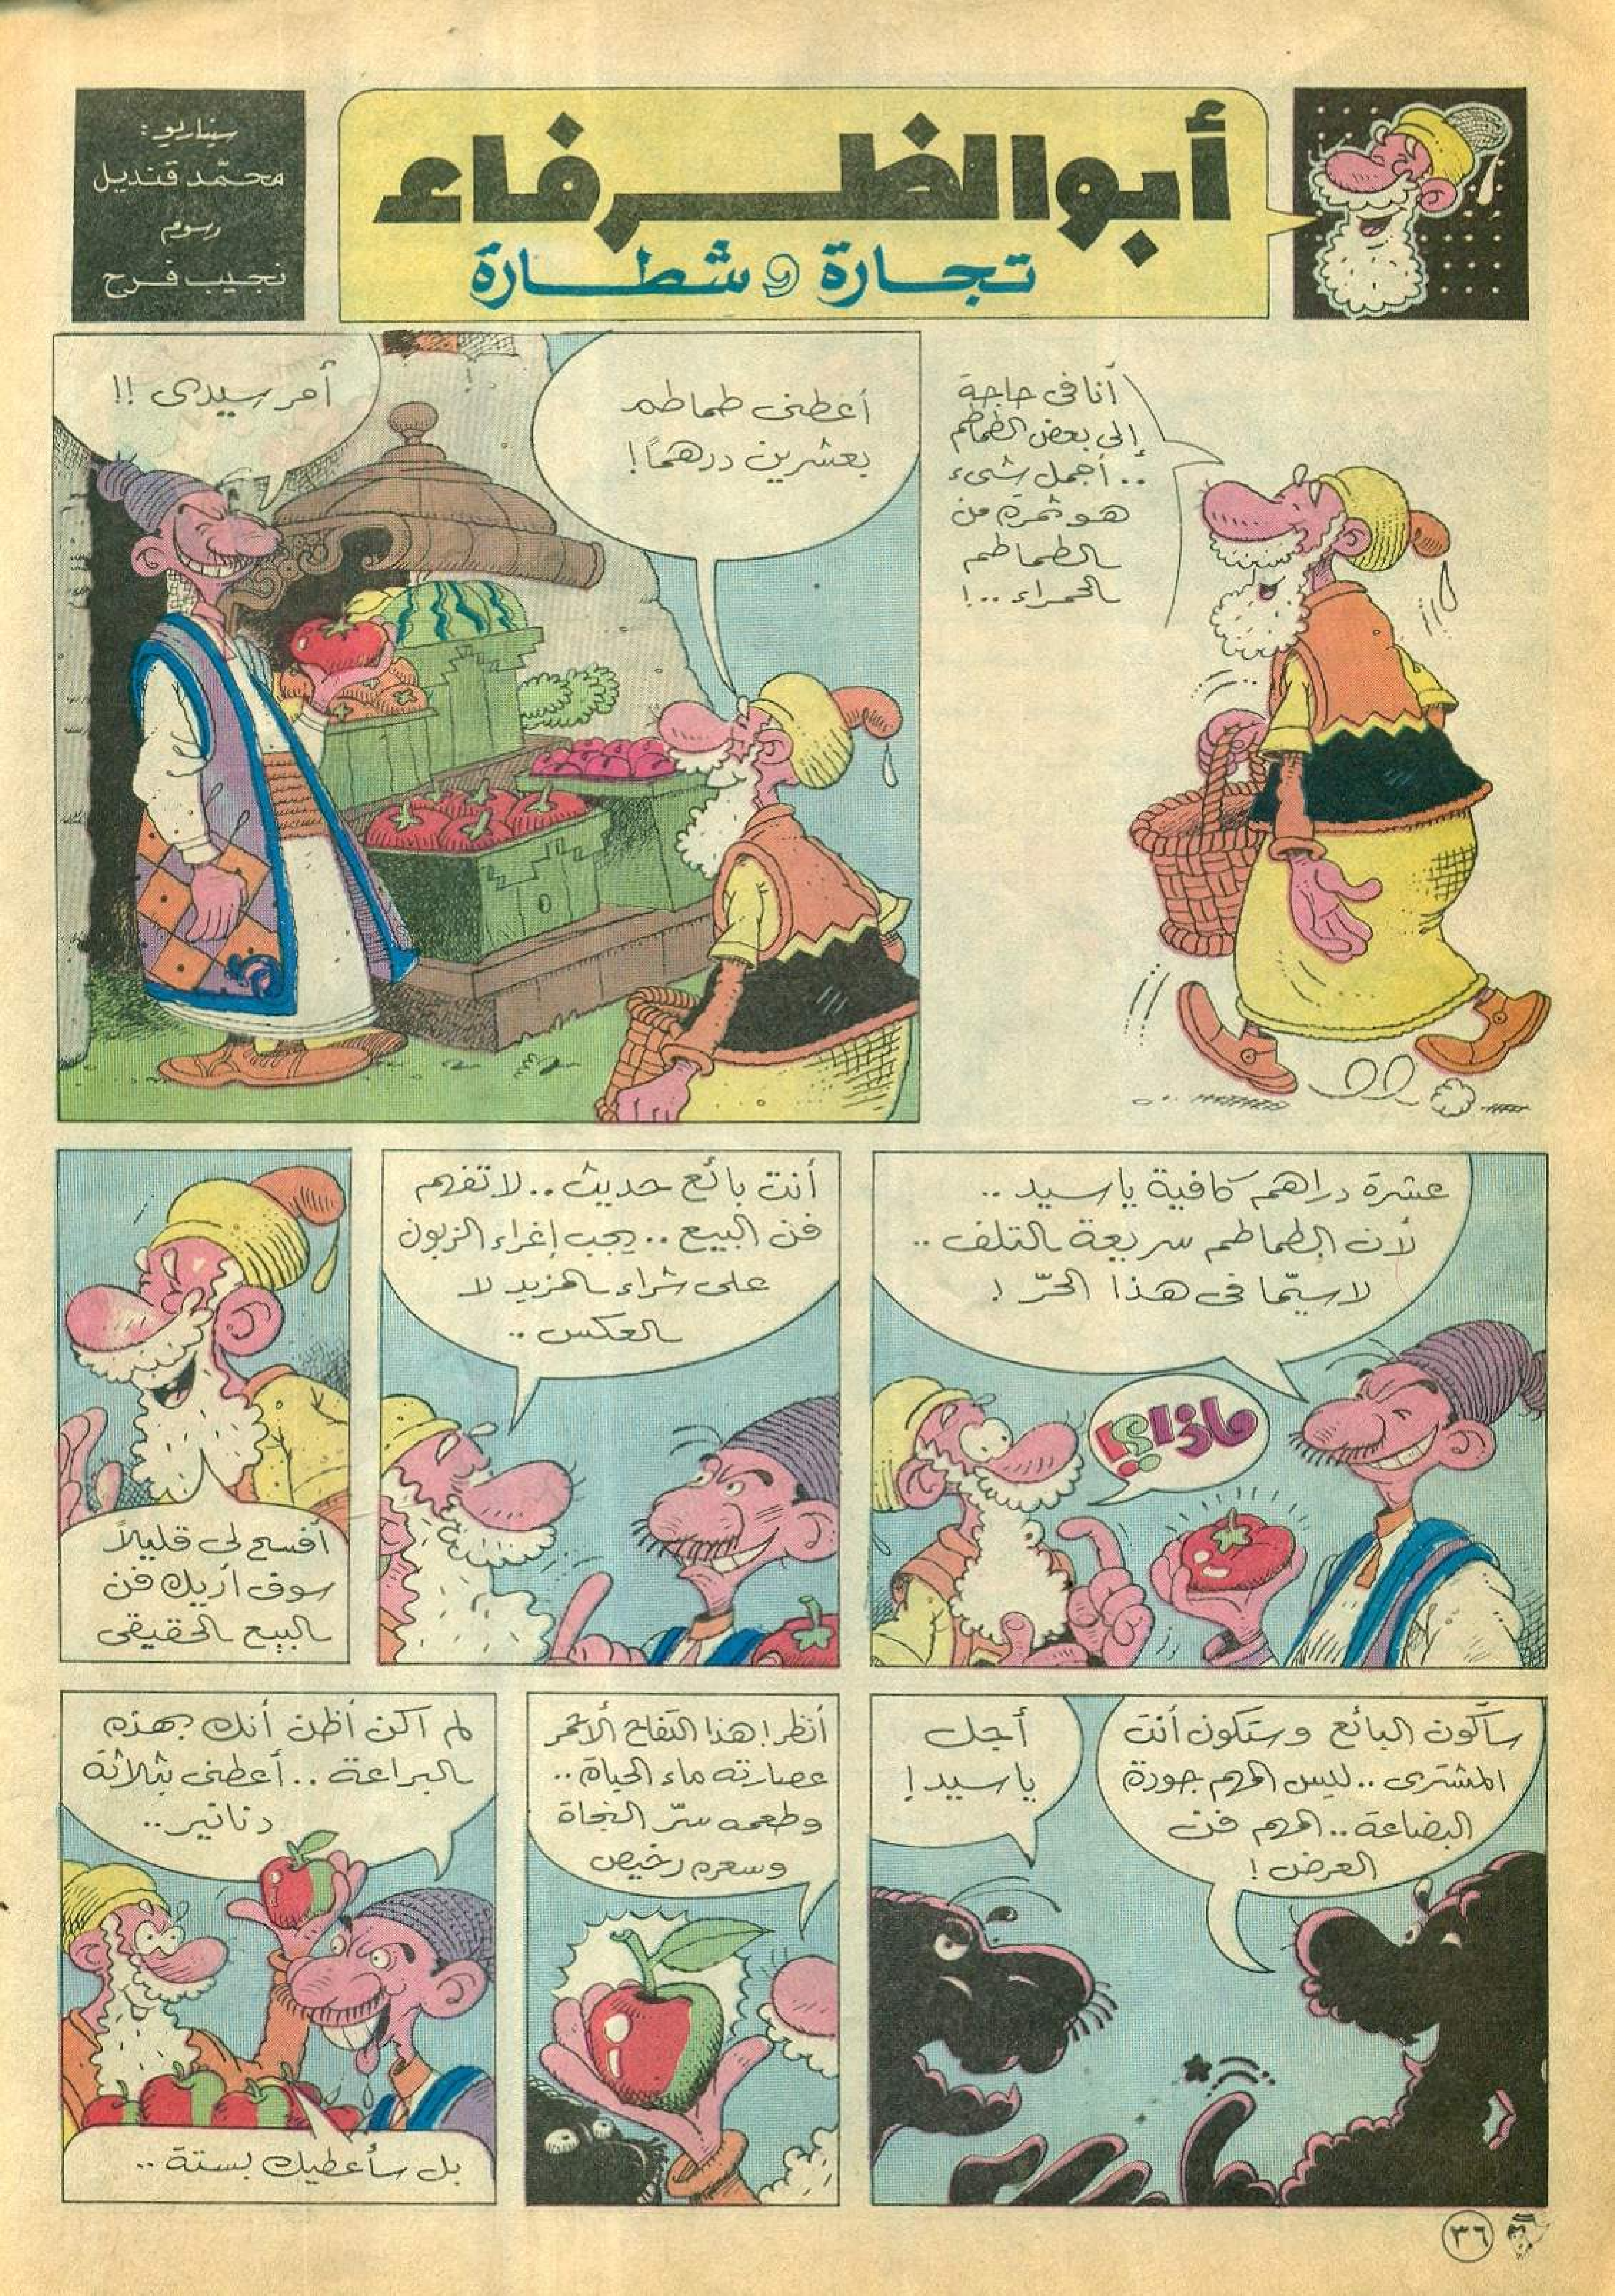 أبو الظرفاء
تجارة و شطارة
سيناريو:
محمّد قنديل
رسوم
نجيب فرح
أنا في حاجة
إلى بعض الطماطم
.. أجمل شيء
هو ثمرة من
الطماطم
الحمراء ..!
أعطني طماطم
بعشرين درهماً!
أمر سيدى !!
عشرة دراهم كافية يا سيد ..
لأن الطماطم سريعة التلف ..
لا سيّما في هذا الحرّ !
ماذا؟!
أنت بائع حديث .. لا تفهم
فن البيع .. يجب إغراء الزبون
على شراء المزيد لا
العكس ..
أفسح لي قليلاً
سوف أريك فن
البيع الحقيقي
سأكون البائع وستكون أنت
المشترى .. ليس المهم جودة
البضاعة .. المهم فن
العرض !
أجل
يا سيد !
أنظر! هذا التفاح الأحمر
عصارته ماء الحياة ..
وطعمه سرّ النجاة
وسعره رخيص
لم أكن أظن أنك بهذه
البراعة .. أعطني بثلاثة
دنانير ..
بل سأعطيك بستة ..
٣٦